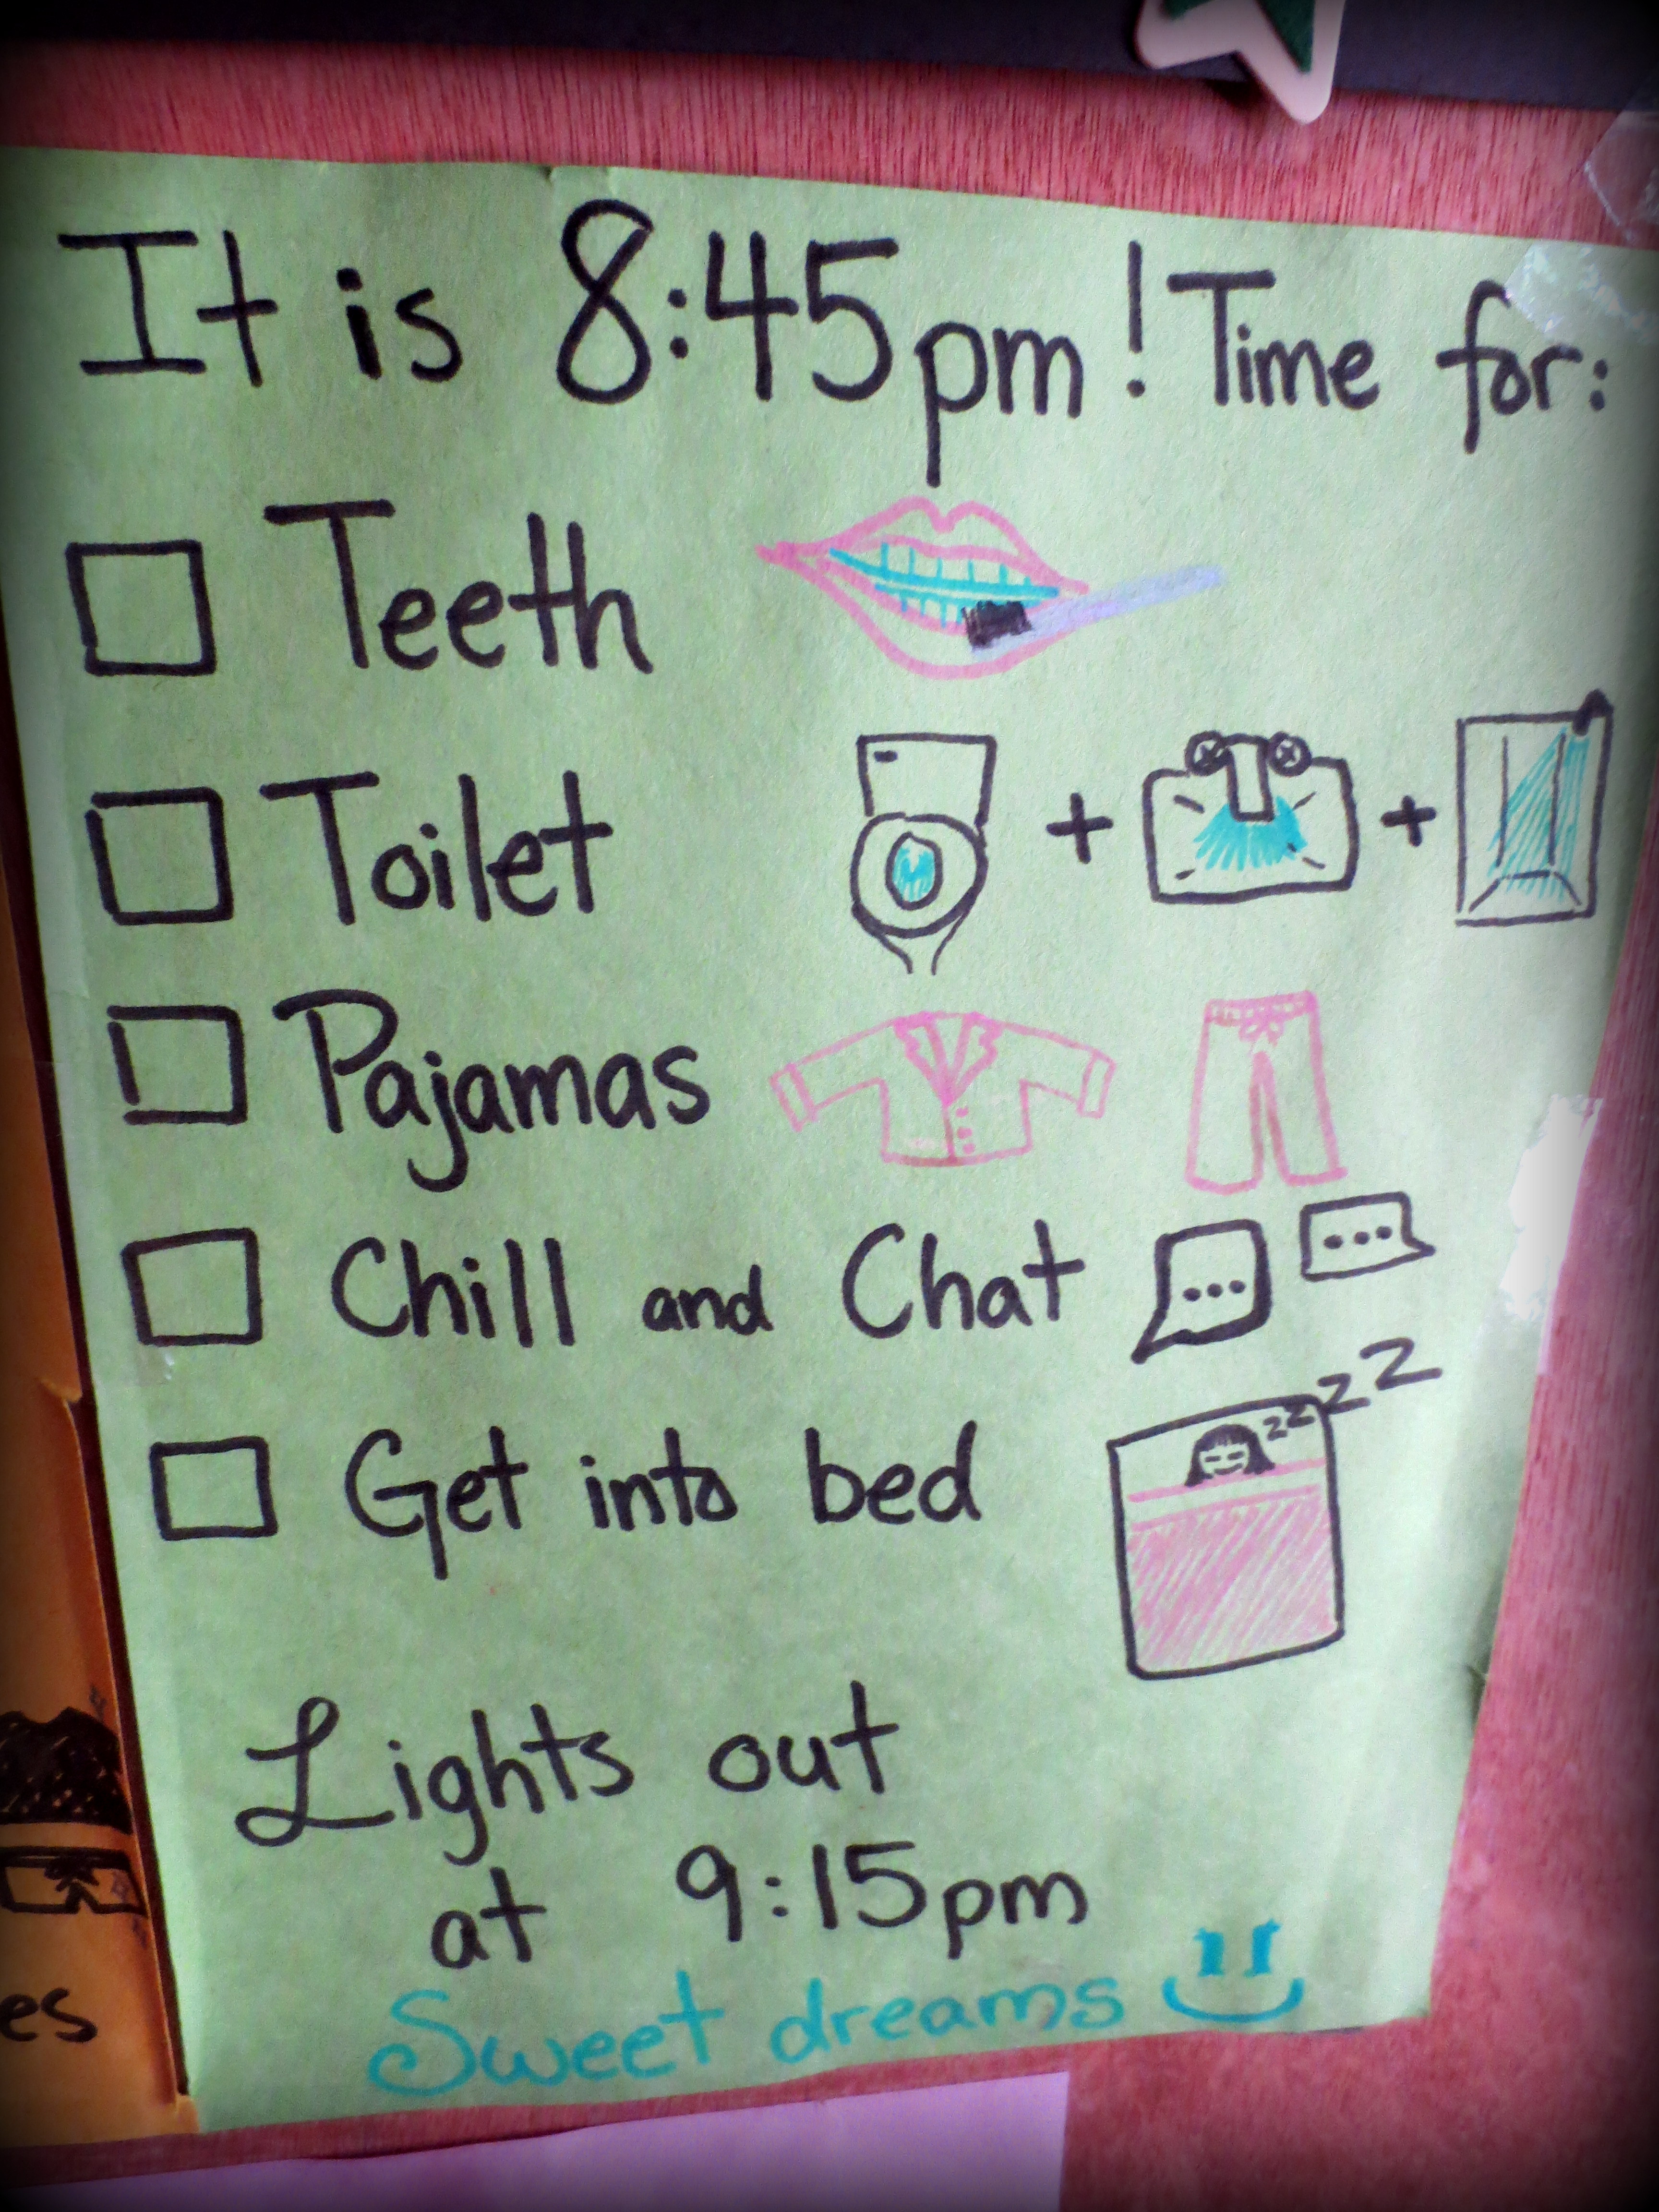 It is 8:45pm! Time for:
Teeth
Toilet + +
Pajamas
Chill and Chat ... ...
Get into bed zzzzz
Lights out
at 9:15pm
Sweet dreams
es